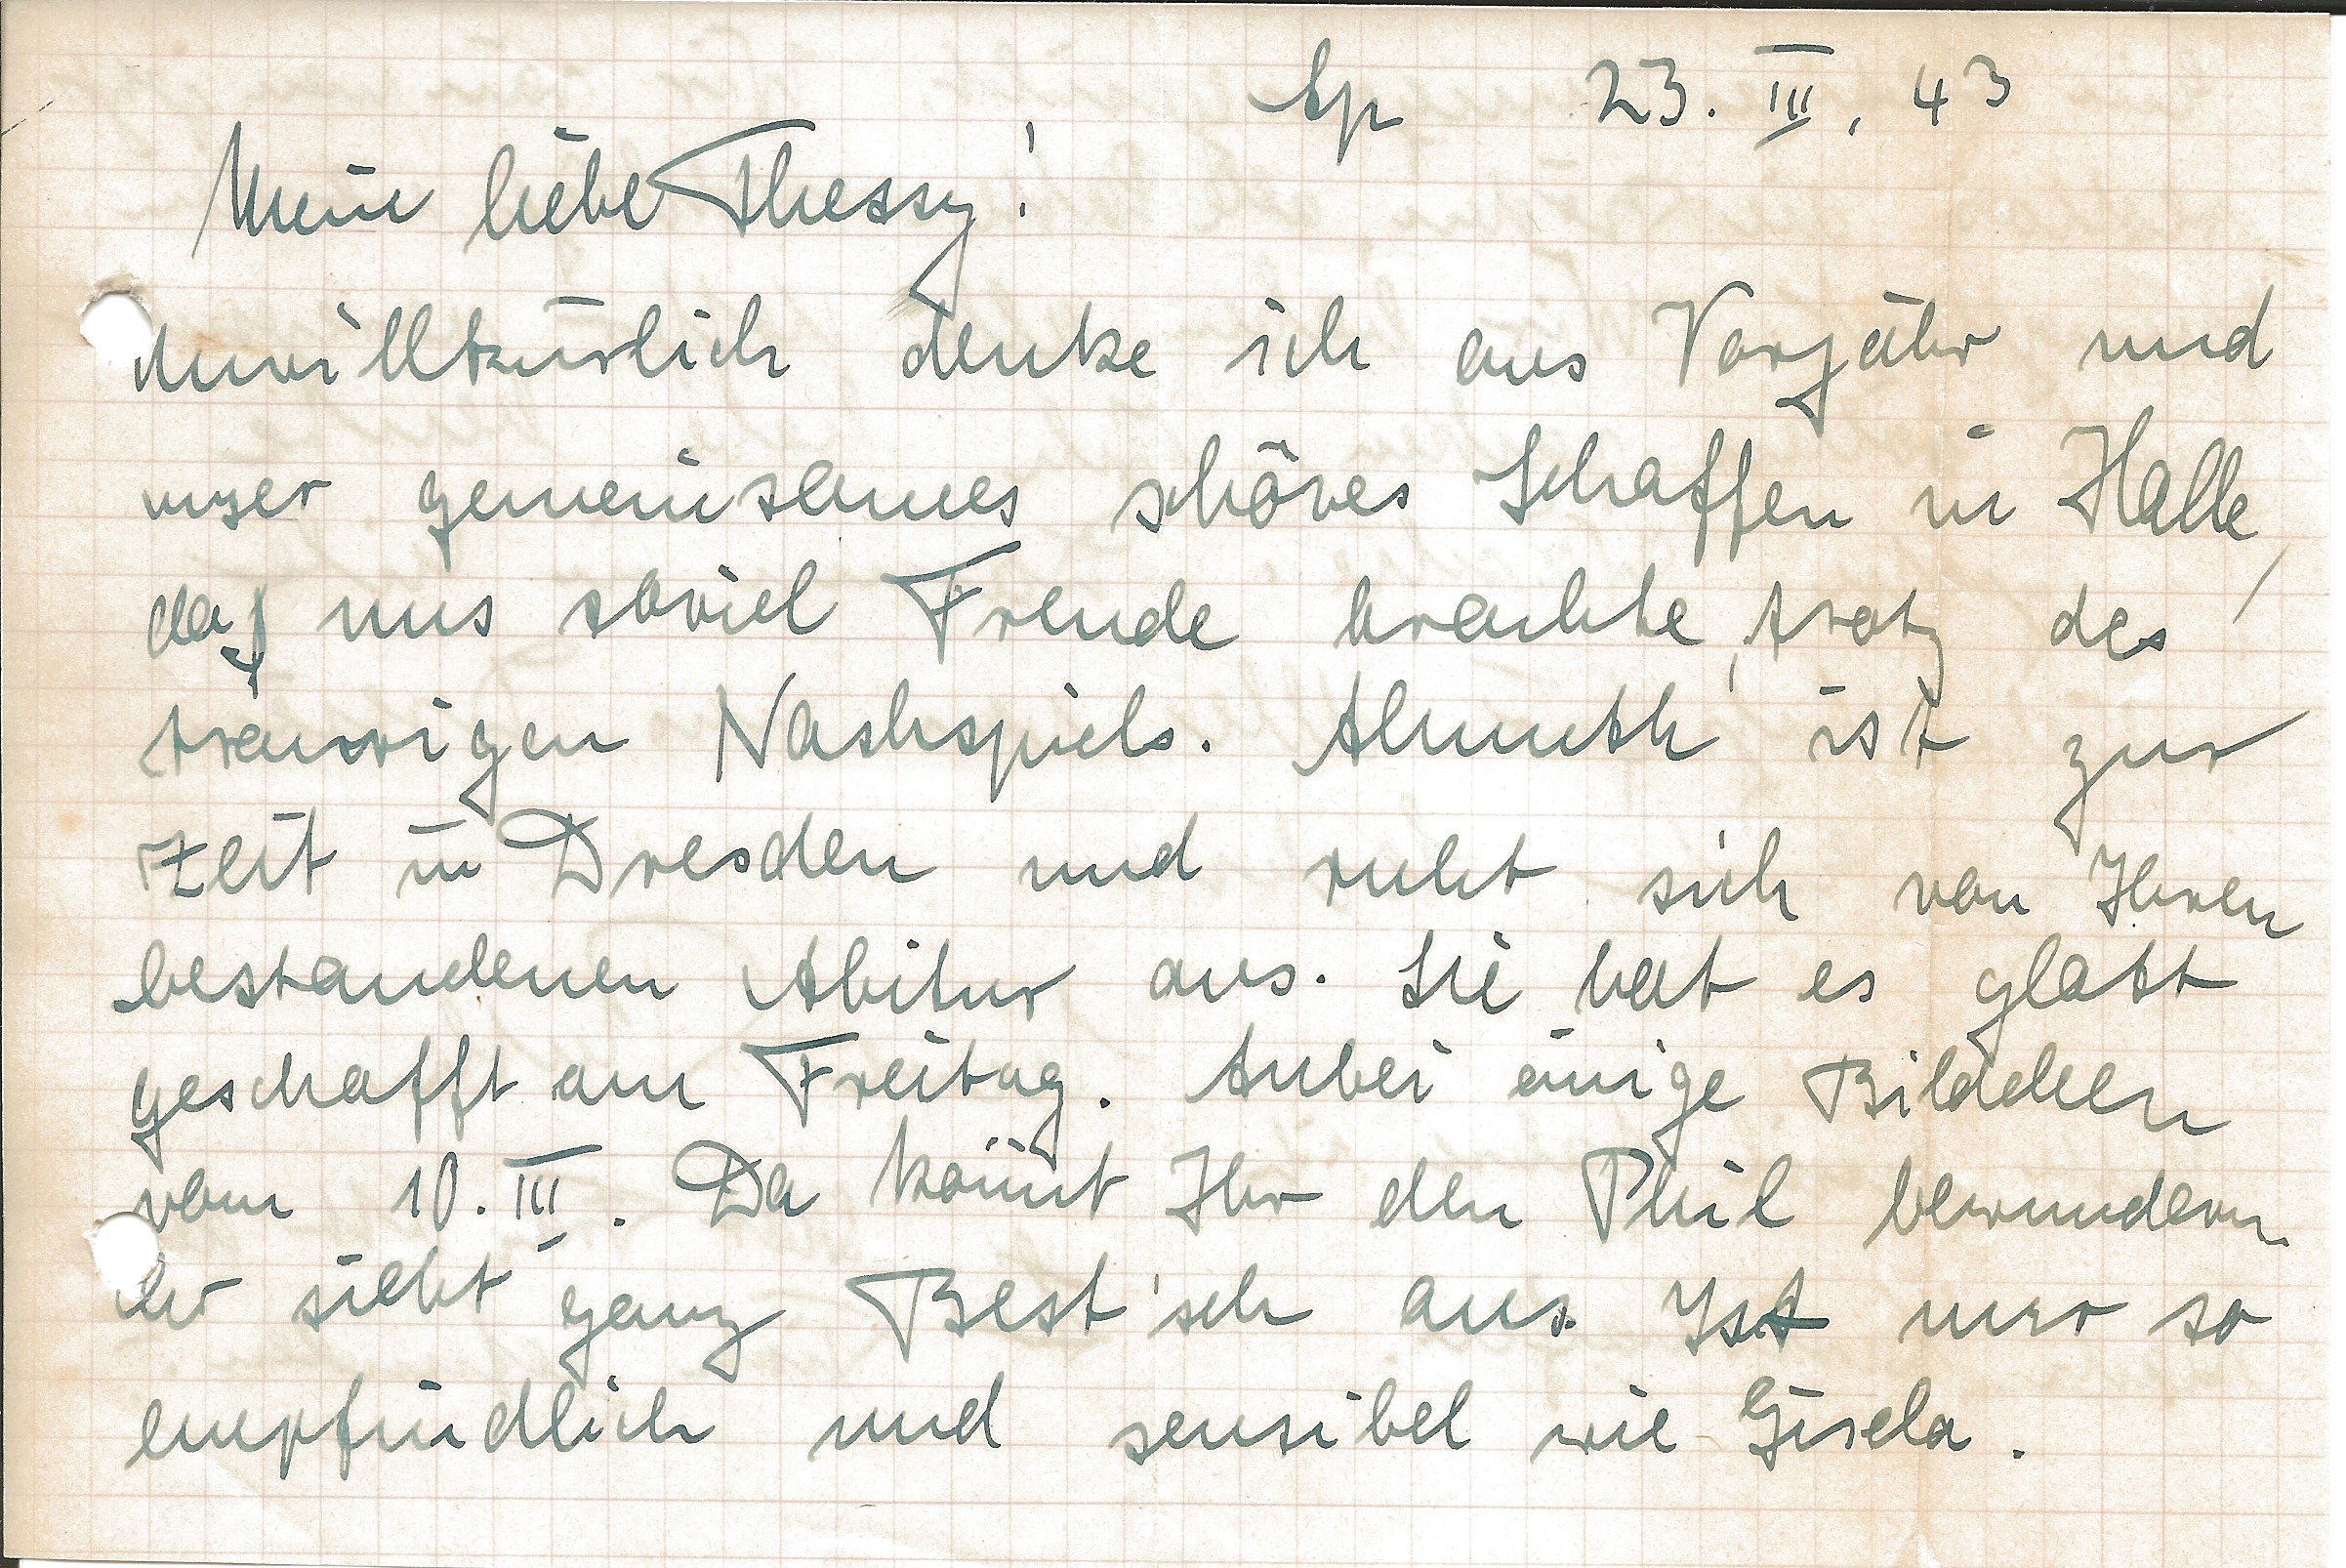 Lp 23. III. 43
Meine liebe Thessy!
Unwillkürlich denke ich ans Vorjahr und
unser gemeinsames schönes Schaffen in Halle,
das uns soviel Freude brachte, trotz des
traurigen Nachspiels. Almuth ist zur
Zeit in Dresden und ruht sich von Ihren
bestandenen Abitur aus. Sie hat es glatt
geschafft am Freitag. Anbei einige Bildchen
vom 10. III. Da könnt Ihr den Phil bewundern.
Er sieht ganz Best'sch aus. Ist nur so
empfindlich und sensibel wie Gisela.